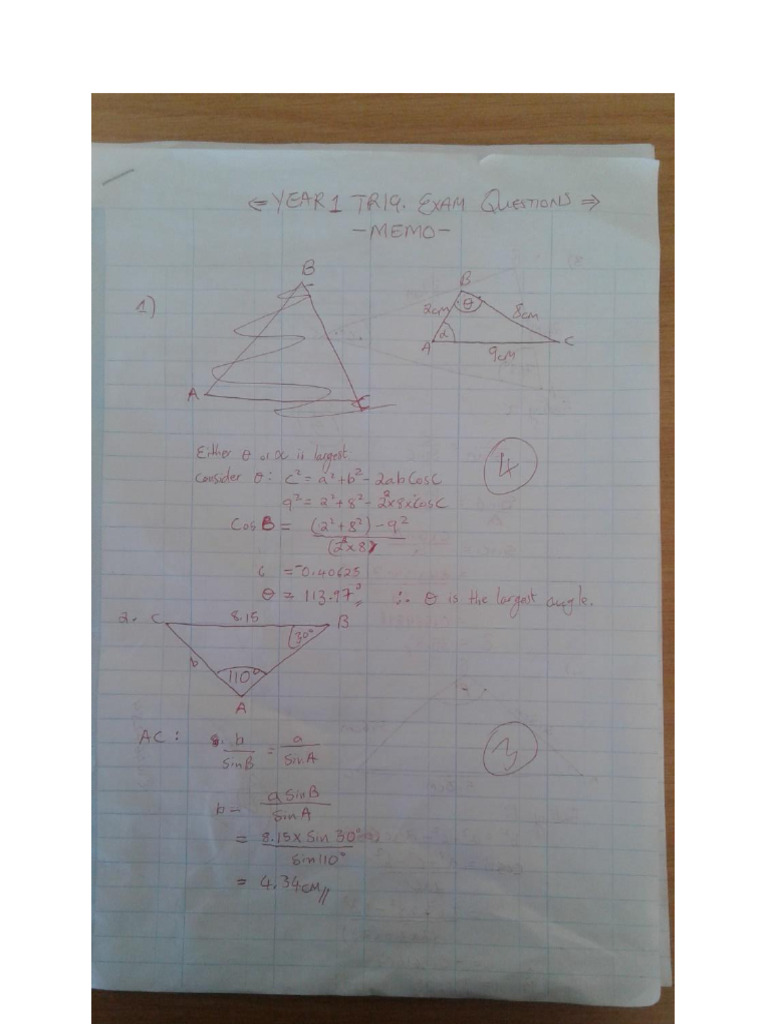 ⇐ YEAR 1 TRIG. EXAM QUESTIONS ⇒
-MEMO-
1)
B
A
C
B
θ
8cm
A
α
C
9cm
Either θ or α is largest
4
Consider θ: c² = a² + b² - 2abCosC
9² = 2² + 8² - 2²x8xCosC
CosB = (2² + 8²) - 9²
(2²x8)
= -0.40625
θ = 113.97° ∴ θ is the largest angle.
2.
C
8.15
B
30°
b
110°
A
AC: b/SinB = a/SinA
3
b = aSinB/SinA
= 8.15 x Sin 30°
Sin110°
= 4.34cm